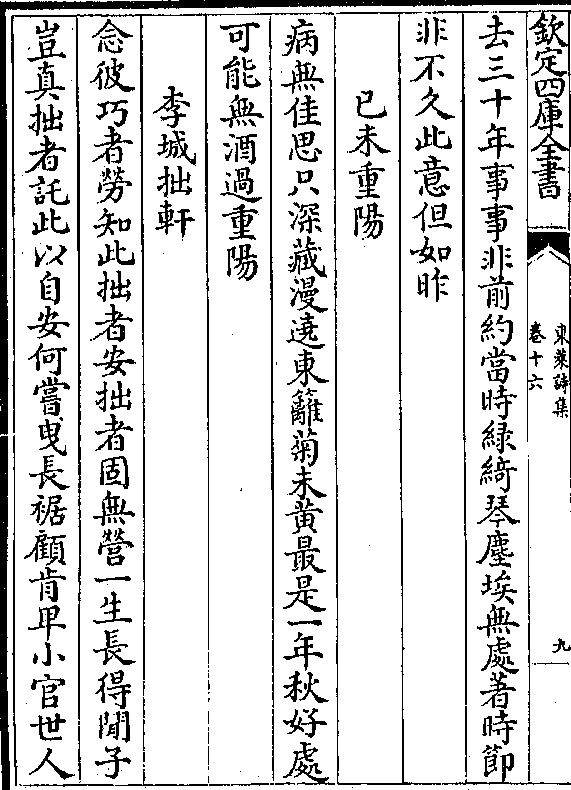 欽定四庫全書
東萊詩集
卷十六
九
去三十年事事非前約當時緑綺琴塵埃無處著時節
非不久此意但如昨
已未重陽
病無佳思只深藏漫遶東籬菊未黄最是一年秋好處
可能無酒過重陽
李城拙軒
念彼巧者勞知此拙者安拙者固無營一生長得閒子
豈真拙者託此以自安何嘗曳長裾顧肯卑小官世人